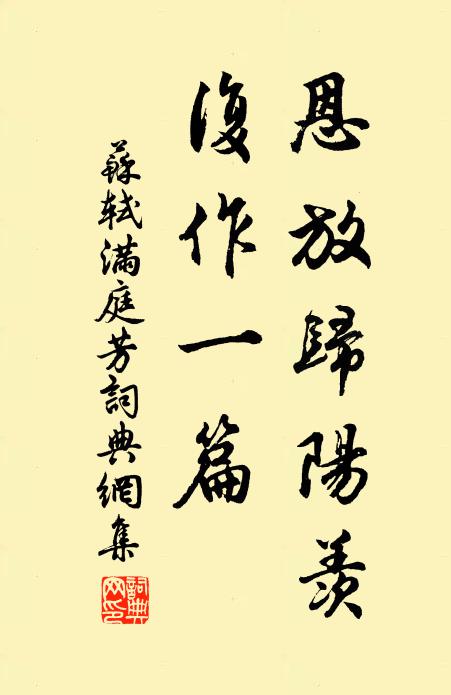 恩放歸陽羨
復作一篇
蘇軾滿庭芳詞典網集
詞典网印